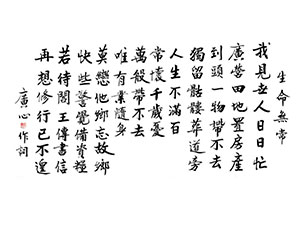 生命無常
我見世人日日忙
廣營田地置房產
到頭一物帶不去
獨留骷髏葬道旁
人生不滿百
常懷千歲憂
萬般帶不去
唯有業隨身
莫戀他鄉忘故鄉
快些警覺備資糧
若待閻王傳書信
再想修行已不遑
廣心作詞